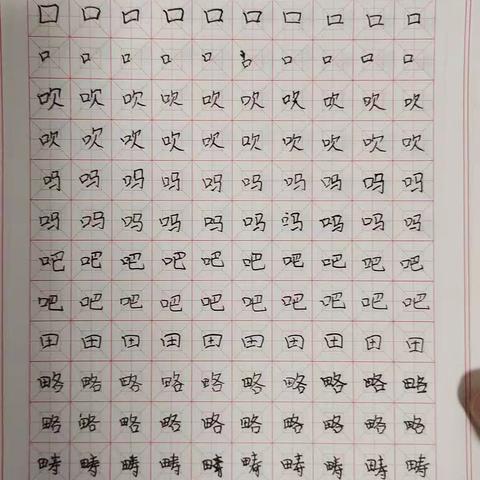 口口口口口口口口口口
口口口口口口口口口
吹吹吹吹吹吹吹吹吹吹
吹吹吹吹吹吹吹吹吹吹
吗吗吗吗吗吗吗吗吗吗
吗吗吗吗吗吗吗吗吗吗
吧吧吧吧吧吧吧吧吧吧
吧吧吧吧吧吧吧吧吧吧
田田田田田田田田田田
略略略略略略略略略略
略略略略略略略略略略
畴畴畴畴畴畴畴畴畴畴